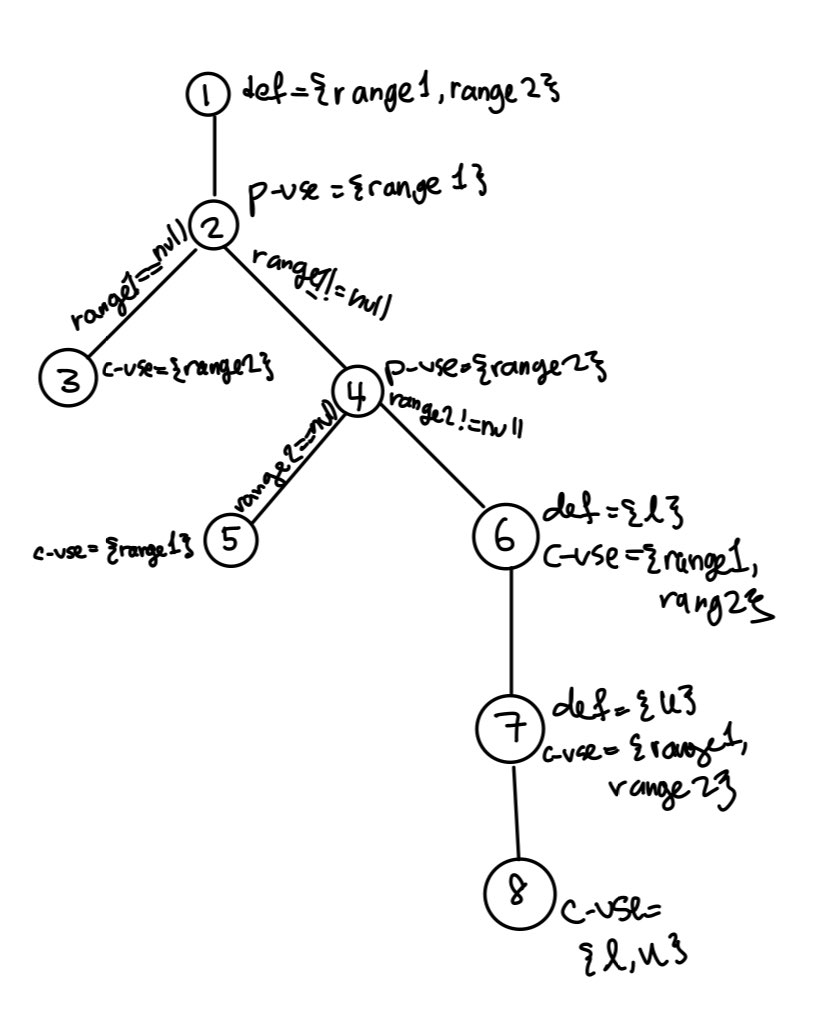 1 def={range1, range2}
p-use={range1}
2
range1==null
range1!=null
3 c-use={range2}
p-use={range2}
4
range2!=null
range2==null
5
c-use={range1}
6
def={l}
c-use={range1,
rang2}
7
def={u}
c-use={range1,
range2}
8
c-use=
{l,u}